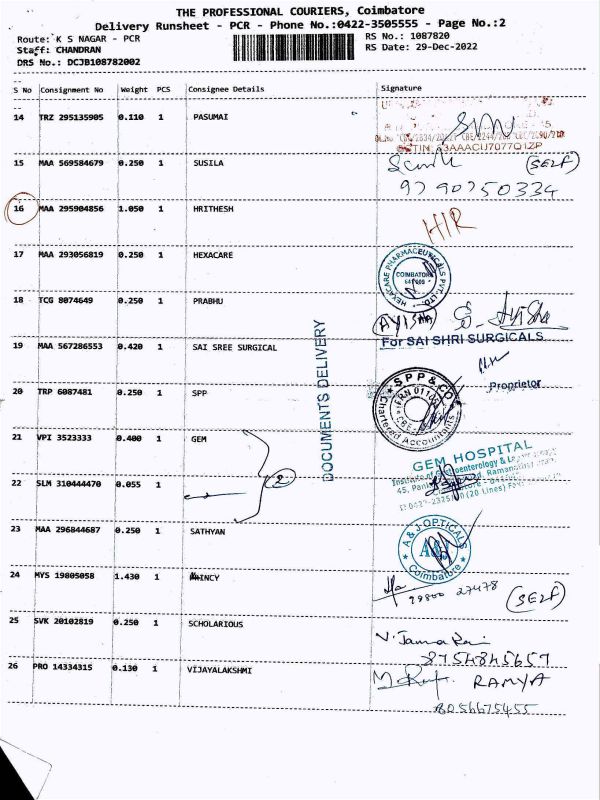 THE PROFESSIONAL COURIERS, Coimbatore
Delivery Runsheet - PCR - Phone No.:0422-3505555 - Page No.:2
Route: K S NAGAR - PCR
RS No.: 1087820
Staff: CHANDRAN
RS Date: 29-Dec-2022
DRS No.: DCJB108782002
S No Consignment No Weight PCS Consignee Details Signature
14 TRZ 295135905 0.110 1 PASUMAI
15 MAA 569584679 0.250 1 SUSILA
(SELF)
9790750334
16 MAA 295904856 1.050 1 HRITHESH
HIR
17 MAA 293056819 0.250 1 HEXACARE
HEXACARE PHARMACEUTICALS PVT. LTD.
COIMBATORE
18 TCG 8074649 0.250 1 PRABHU
(AYISHA)
19 MAA 567286553 0.420 1 SAI SREE SURGICAL
For SAI SHRI SURGICALS
Proprietor
DOCUMENTS DELIVERY
20 TRP 6087481 0.250 1 SPP
SPP & CO
Chartered Accountants
21 VPI 3523333 0.400 1 GEM
GEM HOSPITAL
22 SLM 310444470 0.055 1
2
23 MAA 296844687 0.250 1 SATHYAN
A & J OPTICALS
Coimbatore
24 MYS 19805058 1.430 1
99800 27478 (SELF)
25 SVK 20102819 0.250 1 SCHOLARIOUS
8754845657
26 PRO 14334315 0.130 1 VIJAYALAKSHMI
RAMYA
8056675455